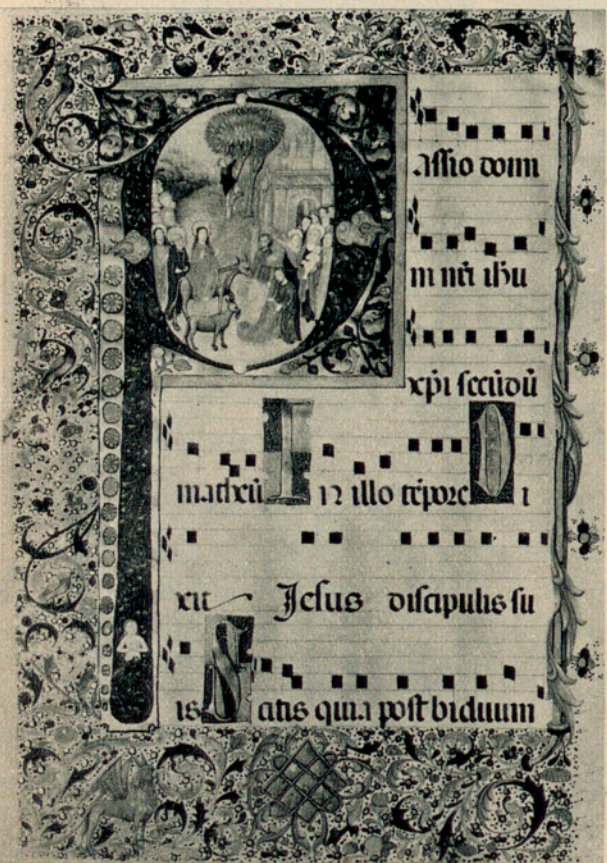 Passio domi
ni nr̃i ihũ
xp̃i secũdũ
matheũ In illo tẽpore Di
xit Jesus discipulis su
is Scitis quia post biduum